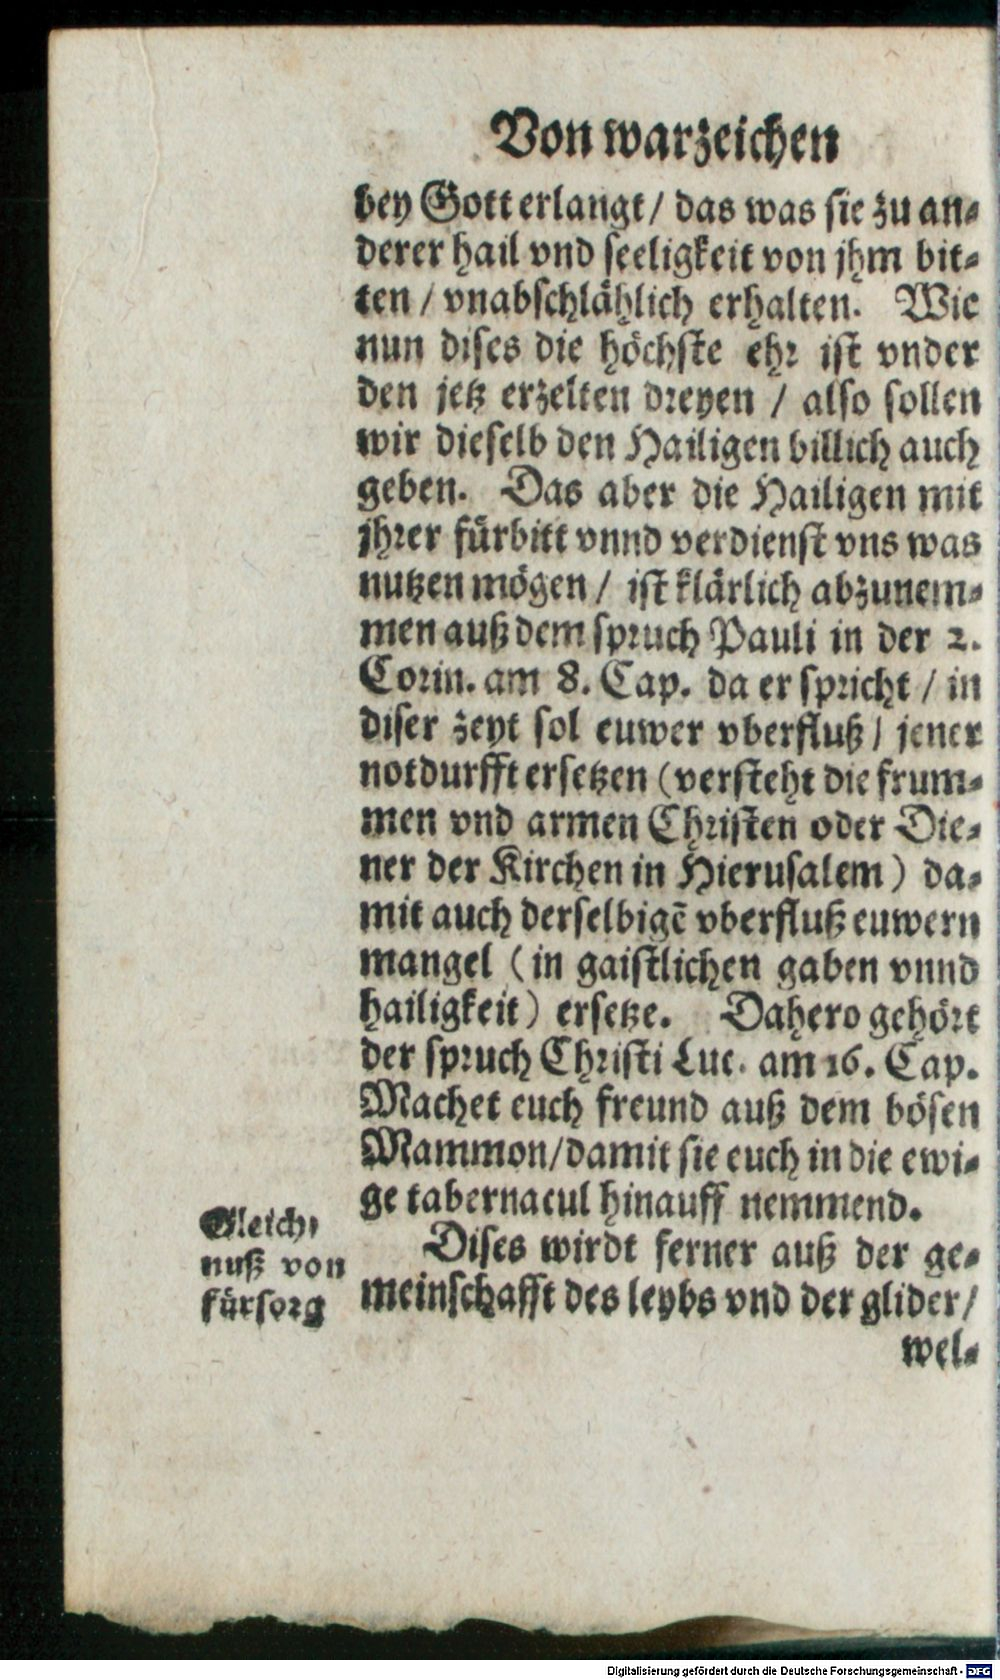 Von warzeichen
bey Gott erlangt / das was sie zu an⸗
derer hail vnd seeligkeit von jhm bit⸗
ten / vnabschlählich erhalten. Wie
nun dises die höchste ehr ist vnder
den jetz erzelten dreyen / also sollen
wir dieselb den Hailigen billich auch
geben. Das aber die Hailigen mit
jhrer fürbitt vnnd verdienst vns was
nutzen mögen / ist klärlich abzunem⸗
men auß dem spruch Pauli in der 2.
Corin. am 8. Cap. da er spricht / in
diser zeyt sol euwer vberfluß / jener
notdurfft ersetzen (versteht die frum⸗
men vnd armen Christen oder Die⸗
ner der Kirchen in Hierusalem) da⸗
mit auch derselbigē vberfluß euwern
mangel (in gaistlichen gaben vnnd
hailigkeit) ersetze. Dahero gehört
der spruch Christi Luc. am 16. Cap.
Machet euch freund auß dem bösen
Mammon/damit sie euch in die ewi⸗
ge tabernacul hinauff nemmend.
Gleich⸗
nuß von
fürsorg
Dises wirdt ferner auß der ge⸗
meinschafft des leybs vnd der glider/
wel⸗
Digitalisierung gefördert durch die Deutsche Forschungsgemeinschaft - DFG